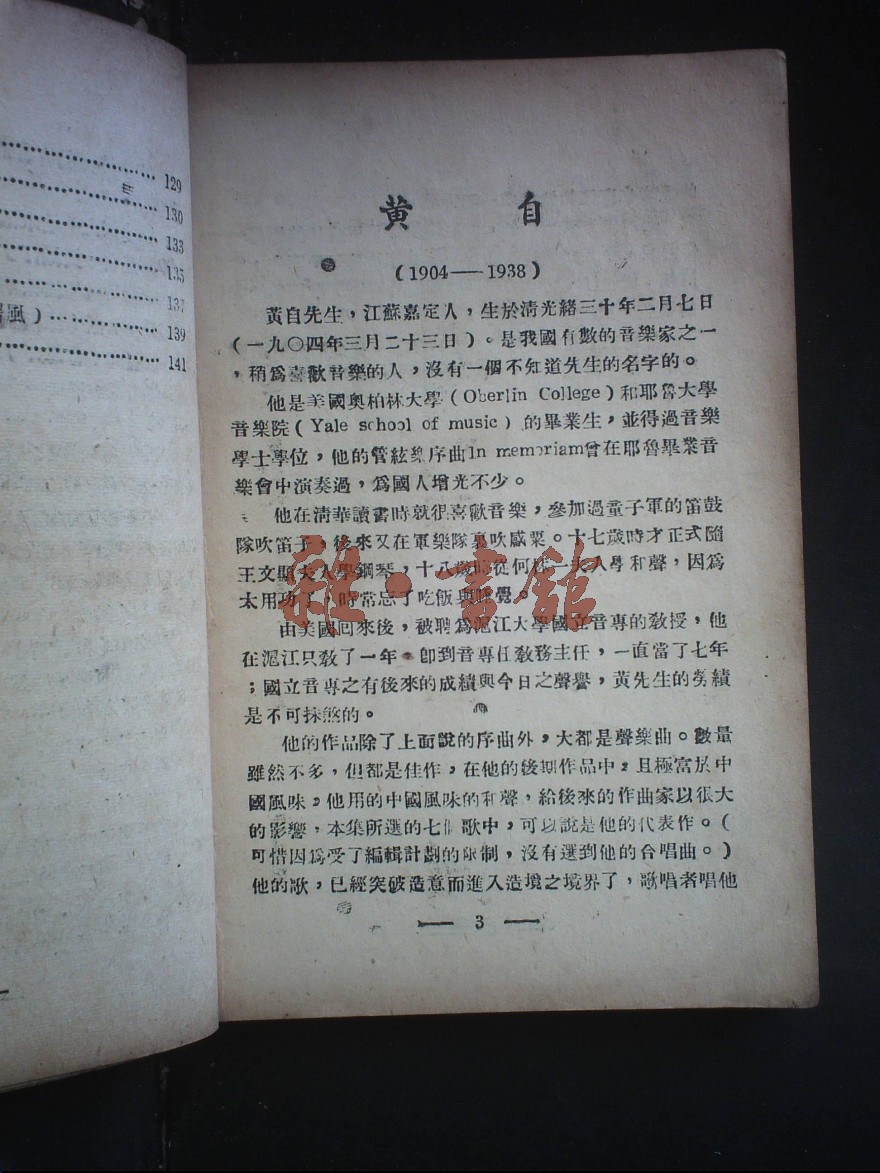 129
130
133
135
137
風）
139
141
黃自
（1904——1938）
黃自先生，江蘇嘉定人，生於淸光緒三十年二月七日
（一九〇四年三月二十三日）。是我國有數的音樂家之一
，稍爲喜歡音樂的人，沒有一個不知道先生的名字的。
他是美國奧柏林大學（Oberlin College）和耶魯大學
音樂院（Yale school of music）的畢業生，並得過音樂
學士學位，他的管絃樂序曲In memoriam曾在耶魯畢業音
樂會中演奏過，爲國人增光不少。
他在淸華讀書時就很喜歡音樂，參加過童子軍的笛鼓
隊吹笛子，後來又在軍樂隊裏吹。十七歲時才正式隨
王文顯夫人學鋼琴，十八歲時從何林一夫人學和聲，因爲
太用功了，時常忘了吃飯與睡覺。
由美國回來後，被聘爲滬江大學國立音專的敎授，他
在滬江只敎了一年，卽到音專任敎務主任，一直當了七年
；國立音專之有後來的成績與今日之聲譽，黃先生的勞績
是不可抹煞的。
他的作品除了上面說的序曲外，大都是聲樂曲。數量
雖然不多，但都是佳作，在他的後期作品中，且極富於中
國風味。他用的中國風味的和聲，給後來的作曲家以很大
的影響，本集所選的七個歌中，可以說是他的代表作。（
可惜因爲受了編輯計劃的限制，沒有選到他的合唱曲。）
他的歌，已經突破造意而進入造境之境界了，歌唱者唱他
— 3 —
雜·書館